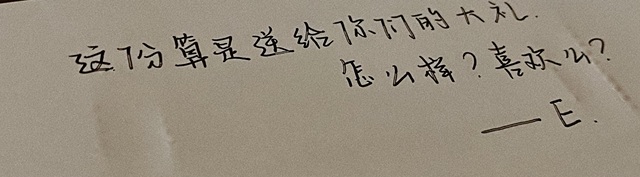 这份算是送给你们的大礼.
怎么样?喜欢么?
——E.